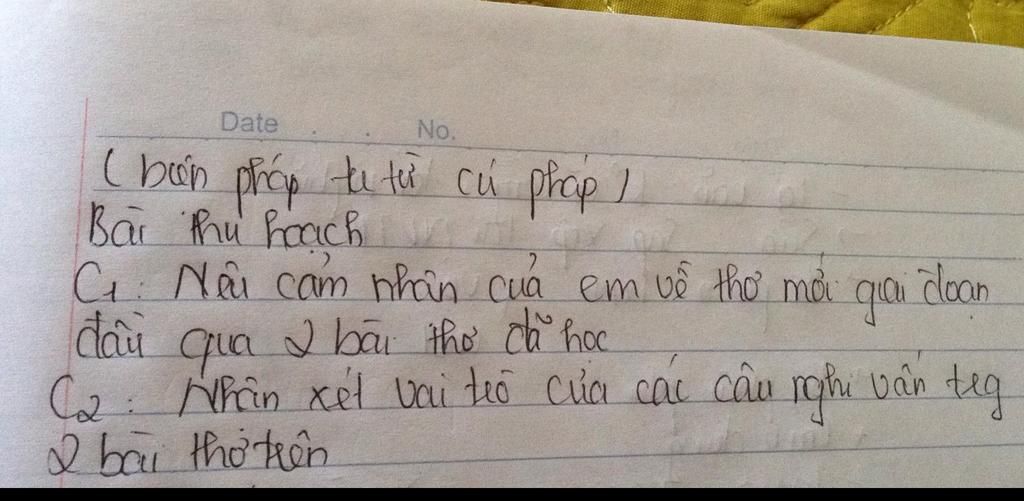 Date . . No.
( biện pháp tu từ cú pháp )
Bài thu hoạch
C1: Nêu cảm nhận của em về thơ mới giai đoạn
đầu qua 2 bài thơ đã học
C2: Nhận xét vai trò của các câu nghi vấn trg
2 bài thơ trên